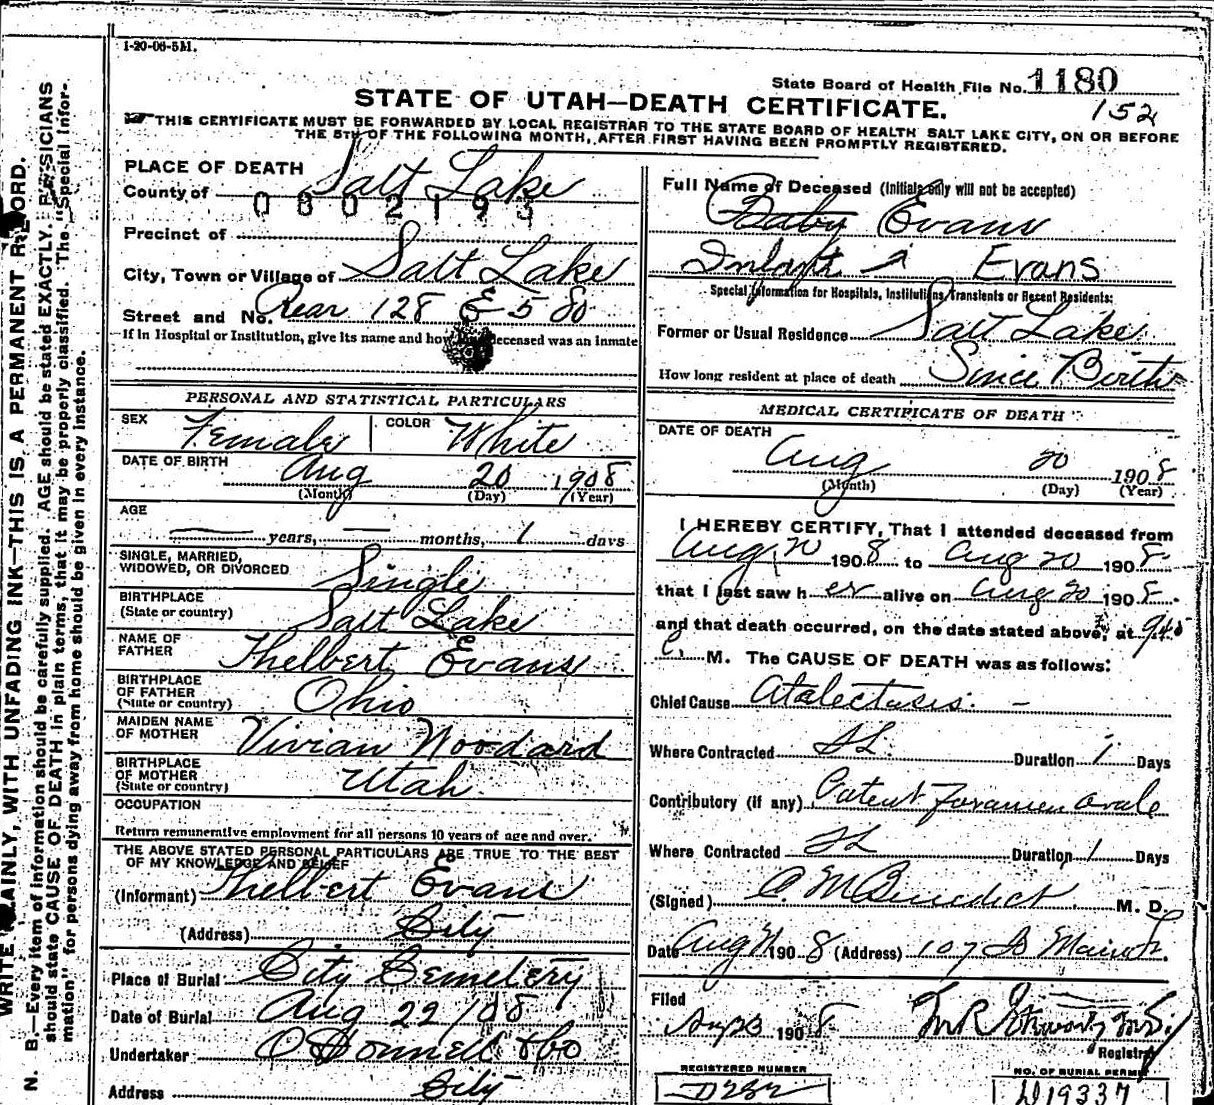 1-20-06-5M.
State Board of Health File No. 1180
152
STATE OF UTAH—DEATH CERTIFICATE.
THIS CERTIFICATE MUST BE FORWARDED BY LOCAL REGISTRAR TO THE STATE BOARD OF HEALTH SALT LAKE CITY, ON OR BEFORE
THE 5TH OF THE FOLLOWING MONTH, AFTER FIRST HAVING BEEN PROMPTLY REGISTERED.
PLACE OF DEATH
County of Salt Lake
0802193
Precinct of
City, Town or Village of Salt Lake
Street and No. Rear 128 E 5 So
If in Hospital or Institution, give its name and how deceased was an inmate
PERSONAL AND STATISTICAL PARTICULARS
SEX Female COLOR White
DATE OF BIRTH Aug 20 1908
(Month) (Day) (Year)
AGE
— years, — months, 1 days
SINGLE, MARRIED,
WIDOWED, OR DIVORCED Single
BIRTHPLACE
(State or country) Salt Lake
NAME OF
FATHER Thelbert Evans
BIRTHPLACE
OF FATHER
(State or country) Ohio
MAIDEN NAME
OF MOTHER Vivian Woodard
BIRTHPLACE
OF MOTHER
(State or country) Utah
OCCUPATION
Return remunerative employment for all persons 10 years of age and over.
THE ABOVE STATED PERSONAL PARTICULARS ARE TRUE TO THE BEST
OF MY KNOWLEDGE AND BELIEF
(Informant) Thelbert Evans
(Address) City
Place of Burial City Cemetery
Date of Burial Aug 22/08
Undertaker O'Donnell & Co
Address City
Full Name of Deceased (Initials only will not be accepted)
Baby Evans
Infant Evans
Special Information for Hospitals, Institutions, Transients or Recent Residents:
Former or Usual Residence Salt Lake
How long resident at place of death Since Birth
MEDICAL CERTIFICATE OF DEATH
DATE OF DEATH
Aug 20 1908
(Month) (Day) (Year)
I HEREBY CERTIFY, That I attended deceased from
Aug 20 1908 to Aug 20 1908
that I last saw her alive on Aug 20 1908.
and that death occurred, on the date stated above, at 9:40
P. M. The CAUSE OF DEATH was as follows:
Chief Cause Atalectasis. –
Where Contracted SL Duration 1 Days
Contributory (if any) Patent Foramen Ovale
Where Contracted SL Duration 1 Days
(Signed) C. M Benedict M. D.
Date Aug 21 1908 (Address) 107 So Main St.
Filed
Aug 23 1908
Registrar
REGISTERED NUMBER
D282
NO. OF BURIAL PERMIT
D19337
WRITE PLAINLY, WITH UNFADING INK—THIS IS A PERMANENT RECORD.
N. B.—Every item of information should be carefully supplied. AGE should be stated EXACTLY. PHYSICIANS
should state CAUSE OF DEATH in plain terms, that it may be properly classified. The "Special Infor-
mation" for persons dying away from home should be given in every instance.